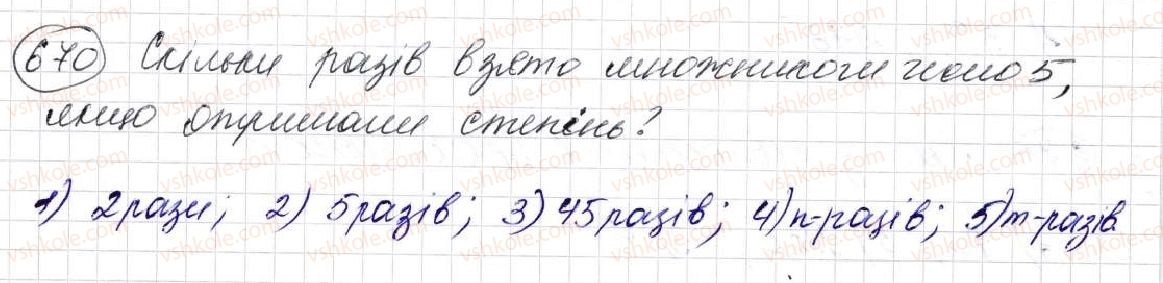 670 Скільки разів взято множником число 5,
якщо отримали степінь?
1) 2 рази; 2) 5 разів; 3) 45 разів; 4) n-разів; 5) m-разів.